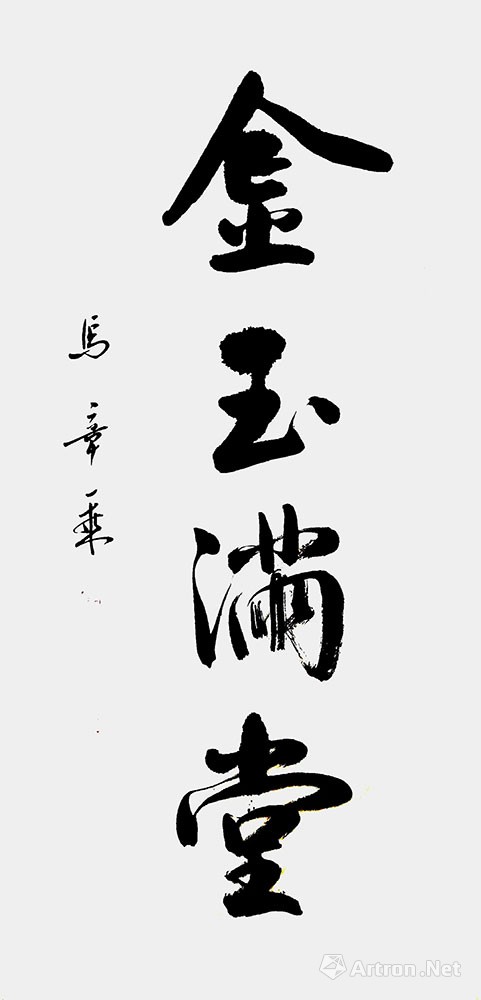 金玉满堂
馬章乘
Artron.Net